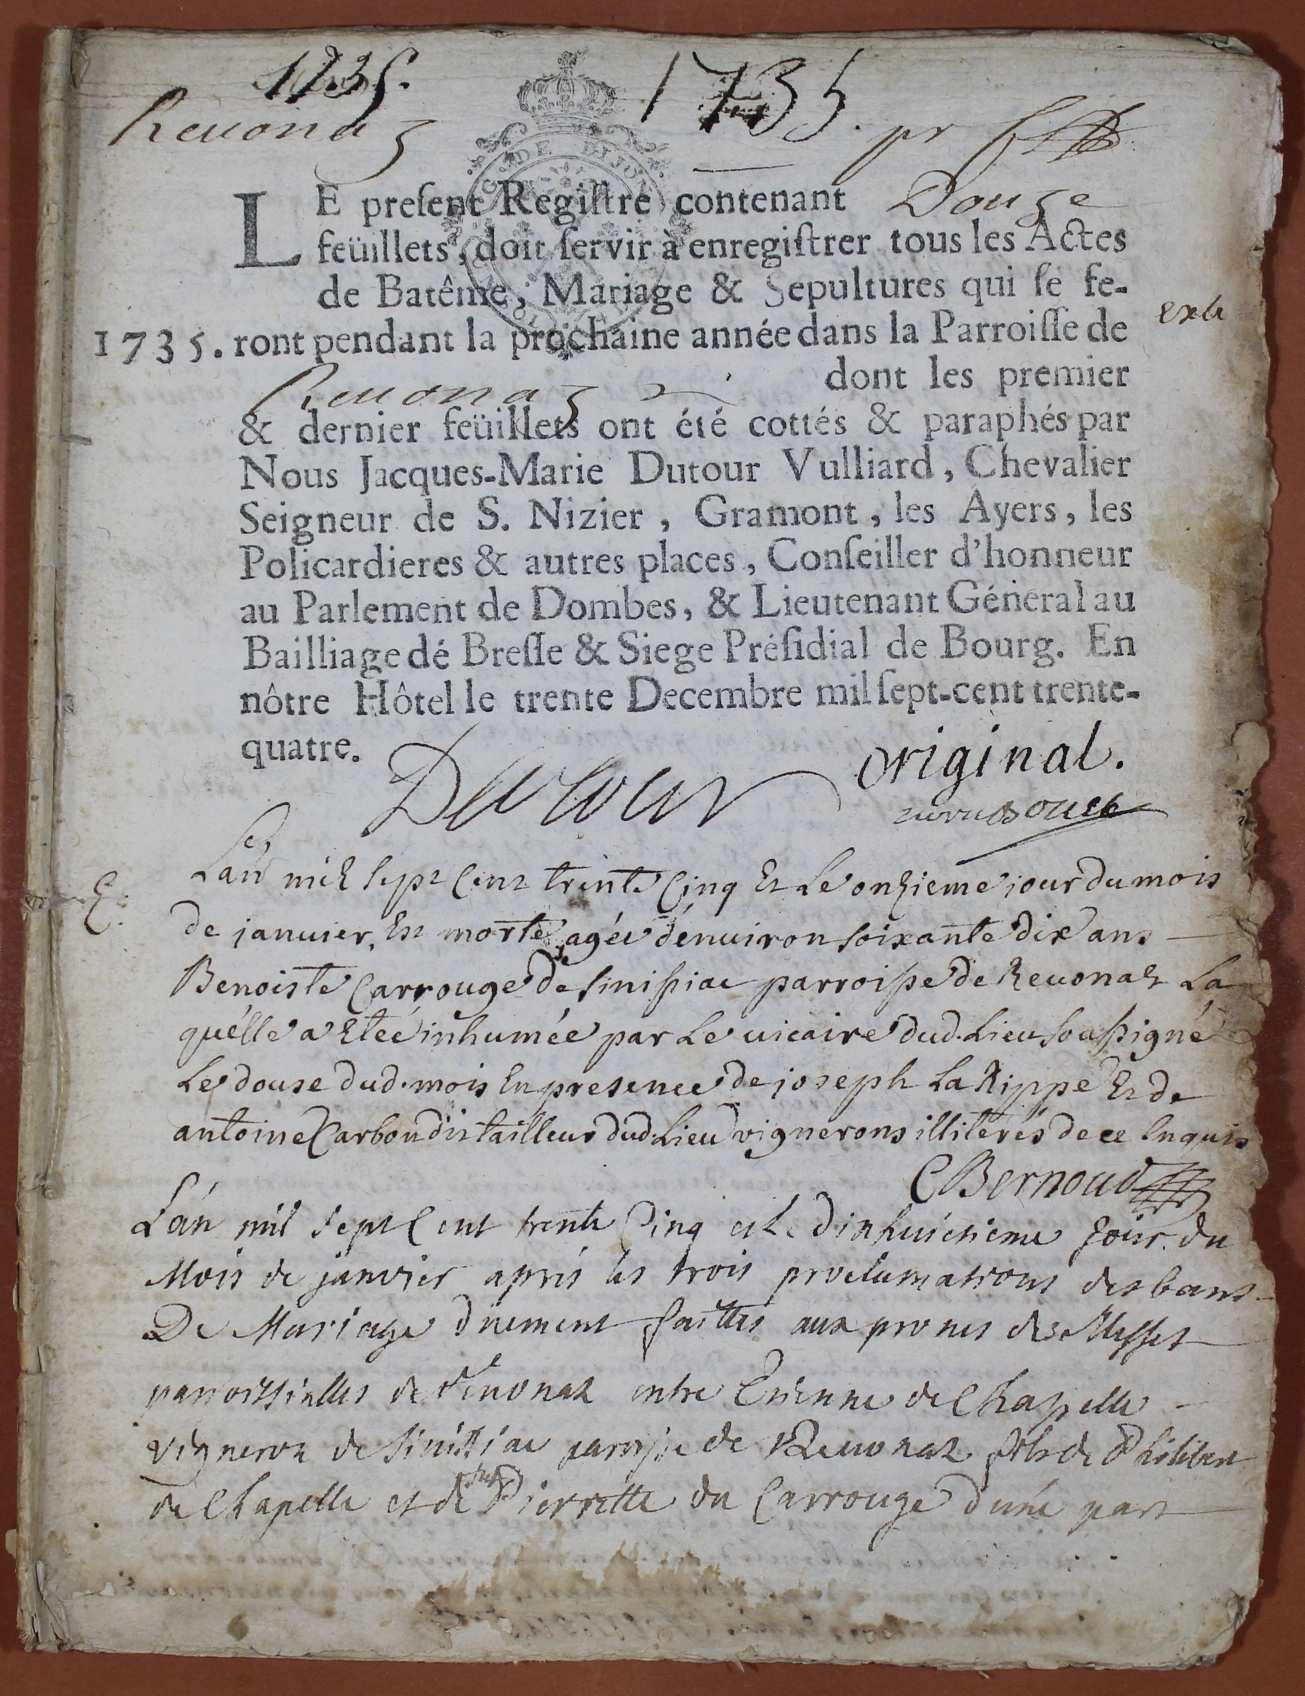 1735.
1735.
Revonaz
pr
DE DIJON
LE preſent Regiſtre contenant Douze
feüillets, doit ſervir à enregiſtrer tous les Actes
de Batême, Mariage & Sepultures qui ſe fe-
1735. ront pendant la prochaine année dans la Parroiſſe de
Revonaz dont les premier
& dernier feüillets ont été cottés & paraphés par
Nous Jacques-Marie Dutour Vulliard, Chevalier
Seigneur de S. Nizier, Gramont, les Ayers, les
Policardieres & autres places, Conſeiller d'honneur
au Parlement de Dombes, & Lieutenant Géneral au
Bailliage dé Breſſe & Siege Préſidial de Bourg. En
nôtre Hôtel le trente Decembre mil ſept-cent trente-
quatre.
Dutour
original.
Lan mil sept cent trente cinq Et Le onzieme jour du mois
de janvier, Est morte agée dénuiron soixante dix ans
Benoiste Carrouge de sinissiac parroisse de Reuonaz La
quélle a Etéé inhumée par Le uicaire dud. Lieu soussigné
Le douse dud. mois En presence de joseph La Rippe Et de
antoine Carbon dit tailleur dud Lieu vignerons illiterés de ce Enquis
C Bernoud
L'an mil sept Cent trente Cinq et Le Dixhuictieme jour du
Mois de janvier aprés les trois proclamations des bans
De Mariage dûement faittes aux prones des Messes
parroissialles de Revonaz entre Etienne de Chapelle
vigneron de sinissiac paroisse de Revonaz fils de Philibert
de Chapelle et de Pierrette du Carrouge d'une part